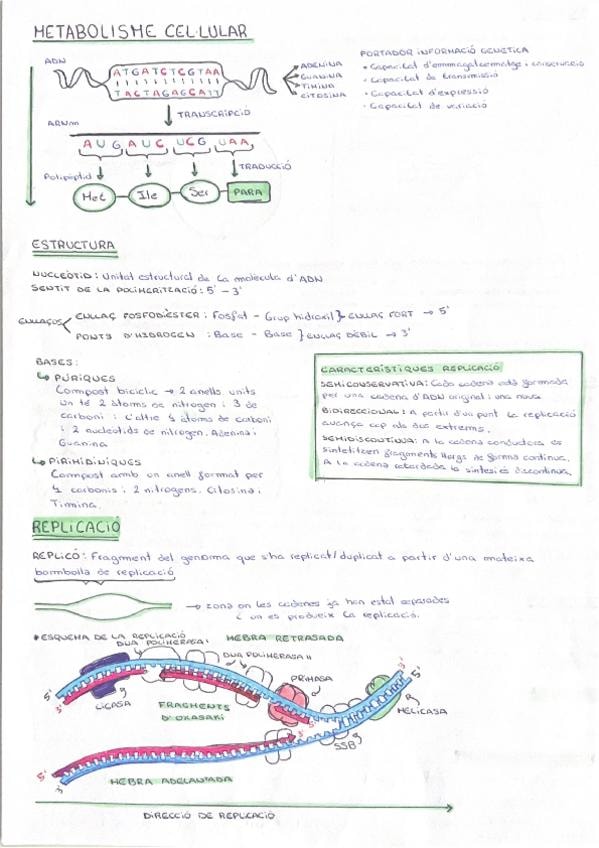 METABOLISME CEL·LULAR
ADN
ATGATCTCGTAA
TACTAGAGCATT
ADENINA
GUANINA
TIMINA
CITOSINA
PORTADOR INFORMACIÓ GENÈTICA
• Capacitat d'emmagatzematge i conservació
• Capacitat de transmissió
• Capacitat d'expressió
• Capacitat de variació
TRANSCRIPCIÓ
ARNm
AUG AUC UCG UAA
TRADUCCIÓ
Polipèptid
Met Ile Ser PARA
ESTRUCTURA
NUCLEÒTID: Unitat estructural de la molècula d'ADN
SENTIT DE LA POLIMERITZACIÓ: 5' - 3'
ENLLAÇOS
ENLLAÇ FOSFODIÈSTER: Fosfat - Grup hidroxil } ENLLAÇ FORT → 5'
PONTS D'HIDROGEN : Base - Base } ENLLAÇ DÈBIL → 3'
BASES:
↳ PÚRIQUES
Compost bicíclic → 2 anells units
un té 2 àtoms de nitrogen i 3 de
carboni i l'altre 4 àtoms de carboni
i 2 nucleòtids de nitrogen. Adenina i
Guanina
↳ PIRIMIDÍNIQUES
Compost amb un anell format per
4 carbonis i 2 nitrogens. Citosina i
Timina.
CARACTERÍSTIQUES REPLICACIÓ
SEMICONSERVATIVA: Cada cadena està formada
per una cadena d'ADN original i una nova
BIDIRECCIONAL: A partir d'un punt la replicació
avança cap als dos extrems.
SEMIDISCONTINUA: A la cadena conductora es
sintetitzen fragments llargs de forma contínua.
A la cadena retardada la síntesi és discontínua.
REPLICACIÓ
REPLICÓ: Fragment del genoma que s'ha replicat/duplicat a partir d'una mateixa
bombolla de replicació
→ zona on les cadenes ja han estat separades
i on es produeix la replicació.
* ESQUEMA DE LA REPLICACIÓ
DNA POLIMERASA I
HEBRA RETRASADA
DNA POLIMERASA II
PRIMASA
3'
5'
HELICASA
5'
3'
LIGASA
FRAGMENTS
D'OKASAKI
5'
3'
SSB
5'
3'
HEBRA ADELANTADA
DIRECCIÓ DE REPLICACIÓ